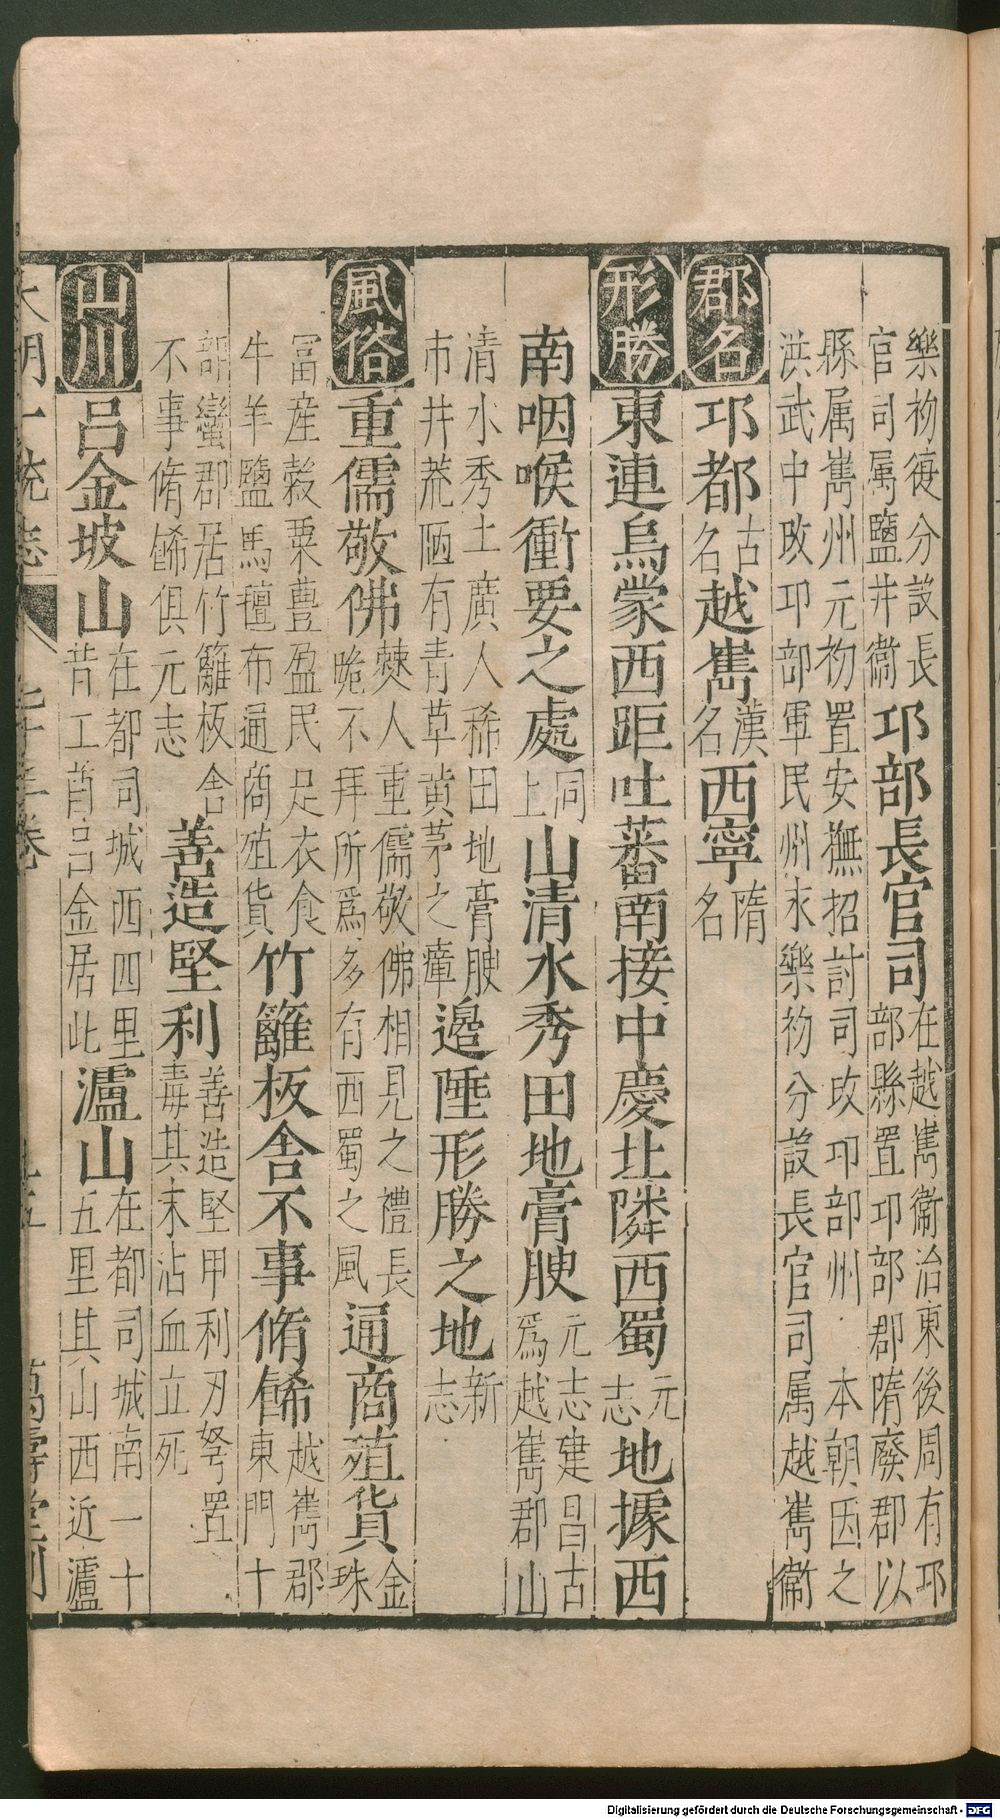 樂初復分設長
官司属鹽井衛
邛部長官司
在越嶲衛治東後周有邛
部縣置邛部郡隋廢郡以
縣属嶲州元初置安撫招討司改邛部州 本朝因之
洪武中改邛部軍民州永樂初分設長官司属越嶲衛
郡名 邛都 古名 越嶲 漢名 西寧 隋名
形勝 東連烏蒙西距吐蕃南接中慶北隣西蜀 元志 地據西
南咽喉衝要之處 同上 山清水秀田地膏腴
元志建昌古
爲越嶲郡山
清水秀土廣人稀田地膏腴
市井荒陋有青草黄茅之瘴
邊陲形勝之地 新志
風俗 重儒敬佛
僰人重儒敬佛相見之禮長
跪不拜所爲多有西蜀之風
通商殖貨
金
珠
富産穀粟豊盈民足衣食
牛羊鹽馬氊布通商殖貨
竹籬板舍不事脩餙
越嶲郡
東門十
部蠻郡居竹籬板舍
不事脩餙俱元志
善造堅利
善造堅甲利刃弩置
毒其末沾血立死
山川 吕金坡山
在都司城西四里
昔工酋吕金居此
瀘山
在都司城南一十
五里其山西近瀘
大明一統志 卷 萬壽堂刊
Digitalisierung gefördert durch die Deutsche Forschungsgemeinschaft - DFG